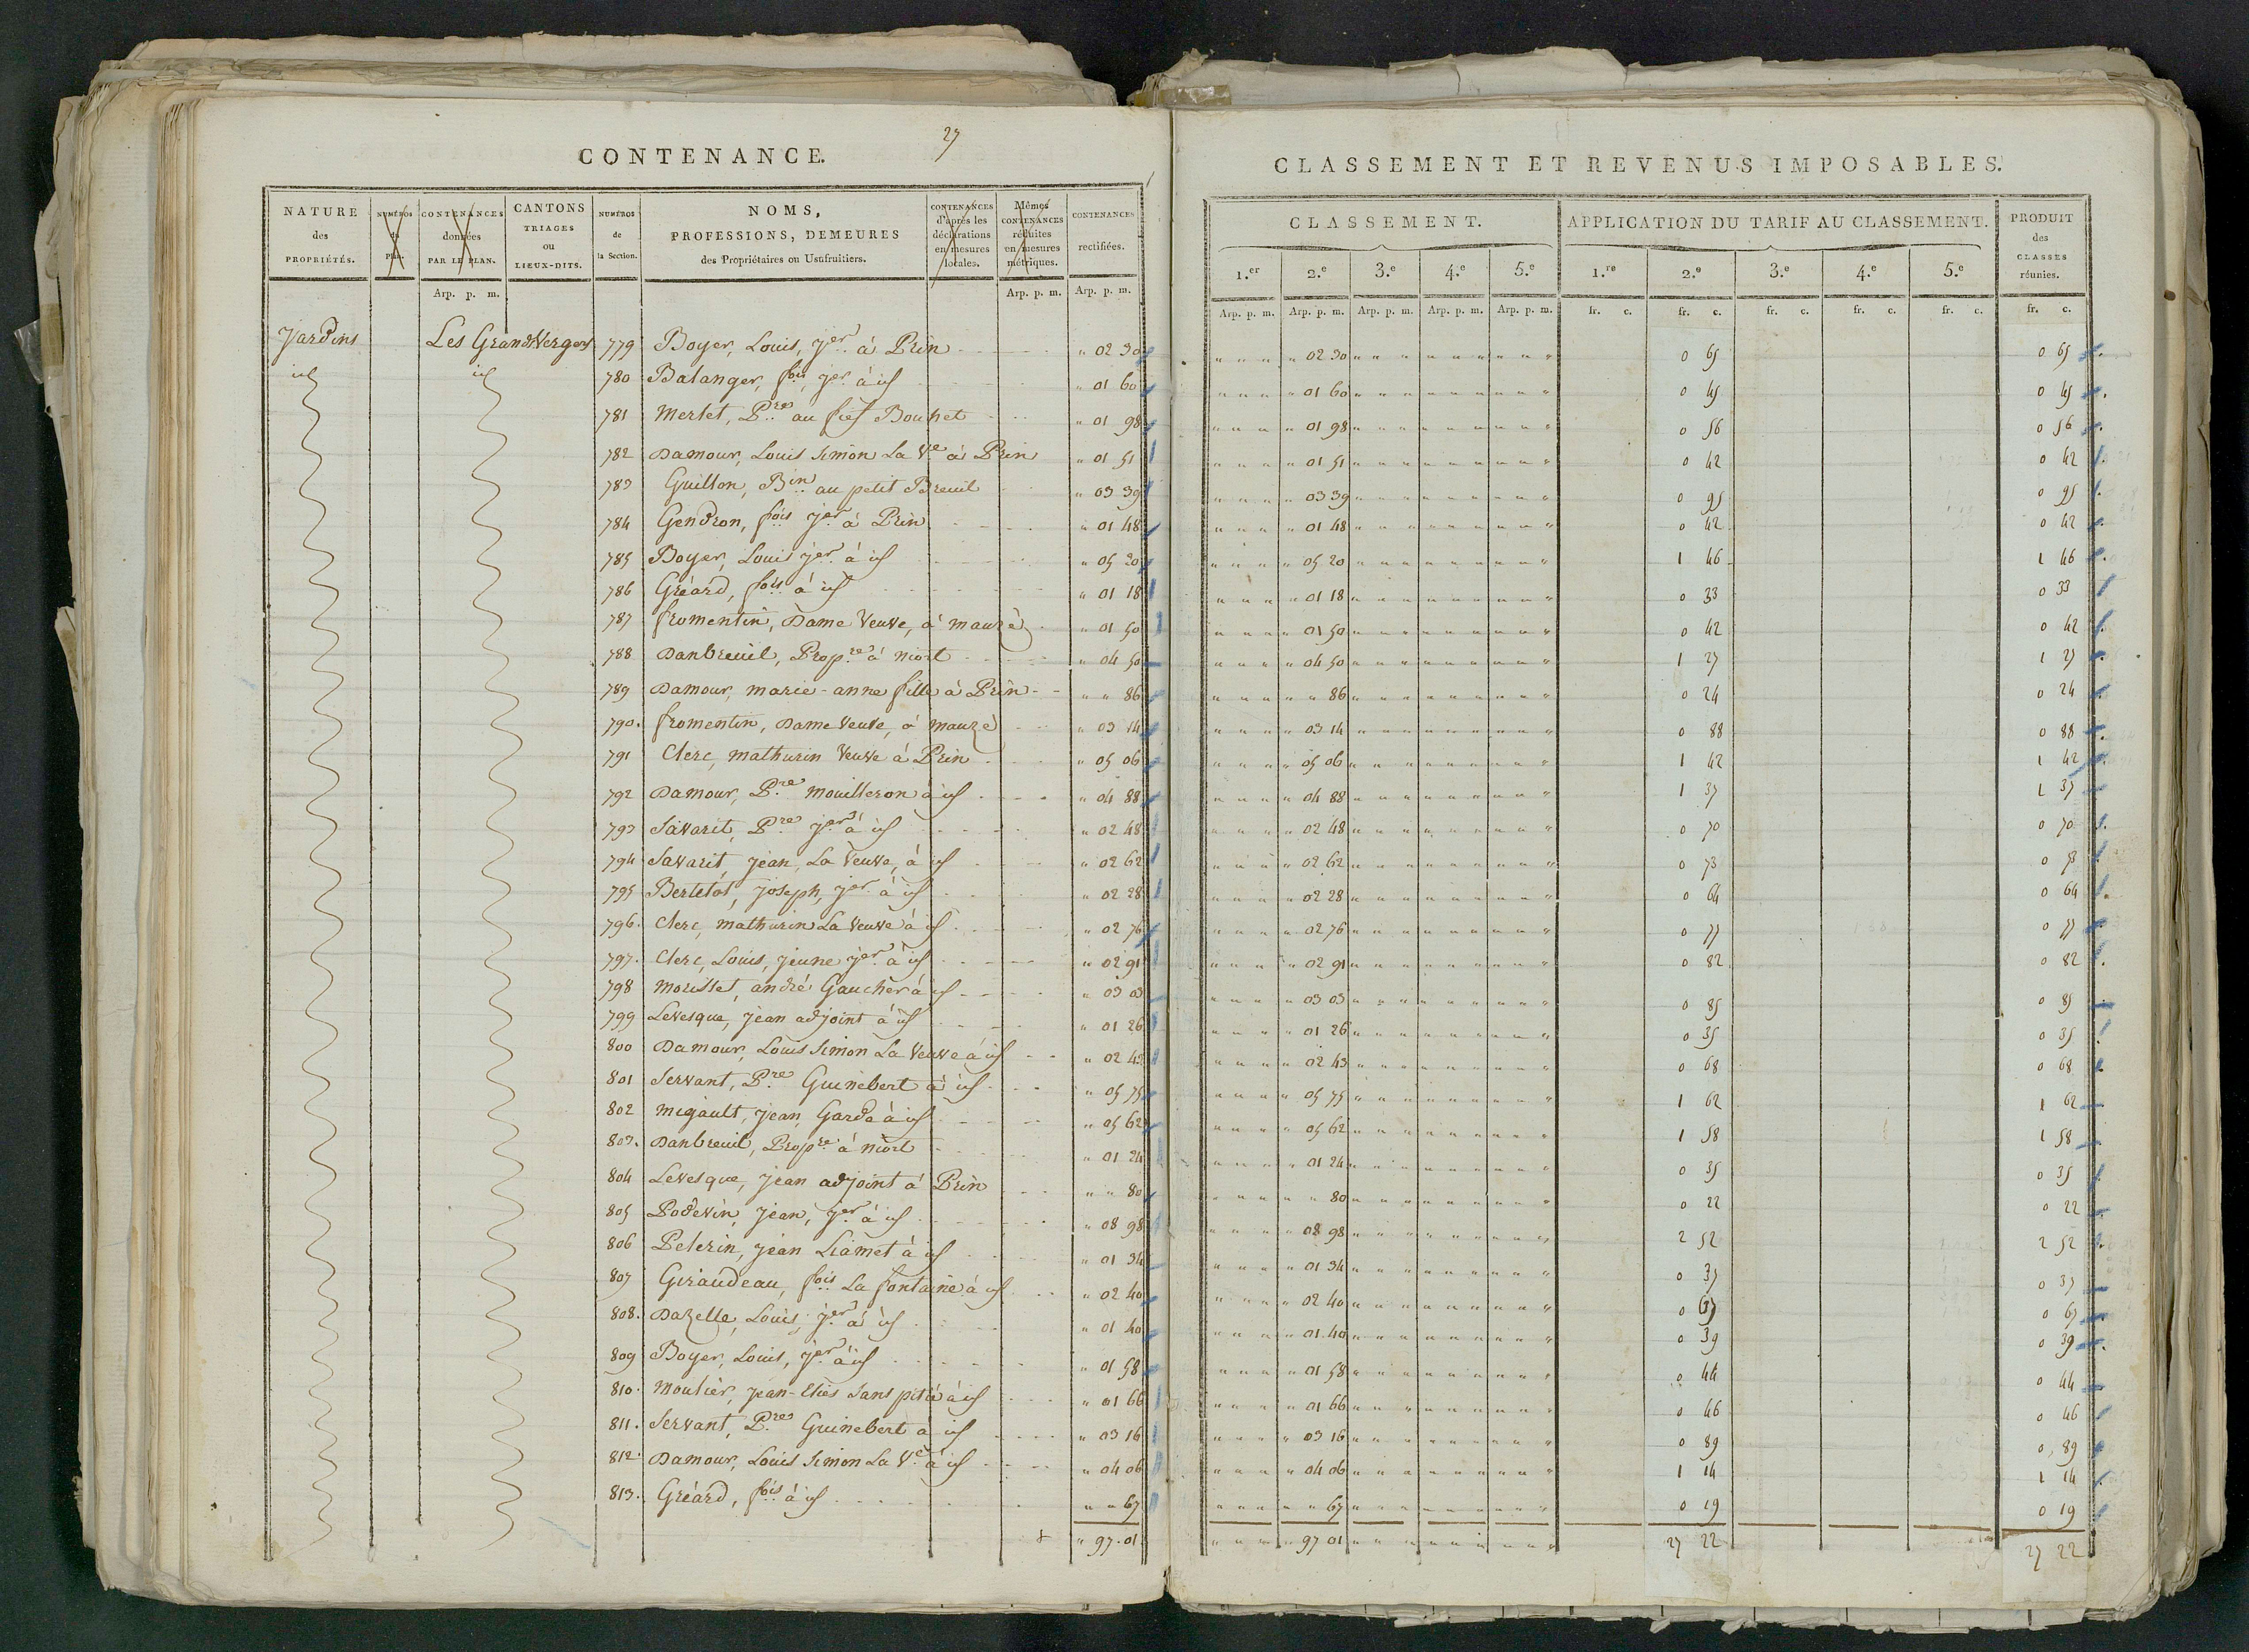 27
CONTENANCE.
NATURE des PROPRIÉTÉS.
NUMÉROS du Plan.
CONTENANCES données PAR LE PLAN.
CANTONS TRIAGES ou LIEUX-DITS.
NUMÉROS de la Section.
NOMS, PROFESSIONS, DEMEURES des Propriétaires ou Usufruitiers.
CONTENANCES d'après les déclarations en mesures locales.
Mêmes CONTENANCES réduites en mesures métriques.
CONTENANCES rectifiées.
Arp. p. m. Arp. p. m. Arp. p. m.
Jardins Les Grands Vergers 779 Boyer, Louis, jer. à Prin " 02 30
id id 780 Balanger, fois, jer. à id " 01 60
781 Merlet, Pre. au fief Bouhet " 01 98
782 Damour, Louis Simon La Ve à Prin " 01 51
783 Guillon, Bin. au petit Breuil " 03 39
784 Gendron, fois jer. à Prin " 01 48
785 Boyer, Louis jer. à id " 05 20
786 Gréard, fois. à id " 01 18
787 fromentin, Dame Veuve, à mauzé " 01 50
788 Danbreuil, Propre. à niort " 04 50
789 Damour, marie-anne fille à Prin " " 86
790. fromentin, Dame Veuve, à mauzé " 03 14
791 Clerc, mathurin Veuve à Prin " 05 06
792 Damour, Pre. Mouilleron à id " 04 88
793 Savarit, Pre. jer. à id " 02 48
794 Savarit, jean, La Veuve, à id " 02 62
795 Bertelot, joseph, jer. à id " 02 28
796. Clerc, mathurin La Veuve à id " 02 76
797. Clerc, Louis, jeune jer. à id " 02 91
798 Morisset, andré Gaucher à id " 03 03
799 Levesque, jean adjoint à id " 01 26
800 Damour, Louis Simon La Veuve à id " 02 43
801 Servant, Pre. Guinebert à id " 05 75
802 Migault, jean, Garde à id " 05 62
803. Danbreuil, Propre. à niort " 01 24
804 Levesque, jean adjoint à Prin " " 80
805 Podevin, jean, jer. à id " 08 98
806 Pelerin, jean Liamet à id " 01 34
807 Giraudeau, fois. La fontaine à id " 02 40
808. Dazelle, Louis, jer. à id " 01 40
809 Boyer, Louis, jer. à id " 01 58
810. Moulier, jean-Elies Sans pitié à id " 01 66
811. Servant, Pre. Guinebert à id " 03 16
812. Damour, Louis Simon La Ve. à id " 04 06
813. Gréard, fois. à id " " 67
" 97.01
CLASSEMENT ET REVENUS IMPOSABLES.
CLASSEMENT. APPLICATION DU TARIF AU CLASSEMENT. PRODUIT des CLASSES réunies.
1.er 2.e 3.e 4.e 5.e 1.re 2.e 3.e 4.e 5.e
Arp. p. m. Arp. p. m. Arp. p. m. Arp. p. m. Arp. p. m. fr. c. fr. c. fr. c. fr. c. fr. c. fr. c.
" 02 30 0 65 0 65
" 01 60 0 45 0 45
" 01 98 0 56 0 56
" 01 51 0 42 0 42
" 03 39 0 95 0 95
" 01 48 0 42 0 42
" 05 20 1 46 1 46
" 01 18 0 33 0 33
" 01 50 0 42 0 42
" 04 50 1 27 1 27
" " 86 0 24 0 24
" 03 14 0 88 0 88
" 05 06 1 42 1 42
" 04 88 1 37 1 37
" 02 48 0 70 0 70
" 02 62 0 73 0 73
" 02 28 0 64 0 64
" 02 76 0 77 0 77
" 02 91 0 82 0 82
" 03 03 0 85 0 85
" 01 26 0 35 0 35
" 02 43 0 68 0 68
" 05 75 1 62 1 62
" 05 62 1 58 1 58
" 01 24 0 35 0 35
" " 80 0 22 0 22
" 08 98 2 52 2 52
" 01 34 0 37 0 37
" 02 40 0 67 0 67
" 01 40 0 39 0 39
" 01 58 0 44 0 44
" 01 66 0 46 0 46
" 03 16 0 89 0 89
" 04 06 1 14 1 14
" " 67 0 19 0 19
" 97 01 27 22 27 22